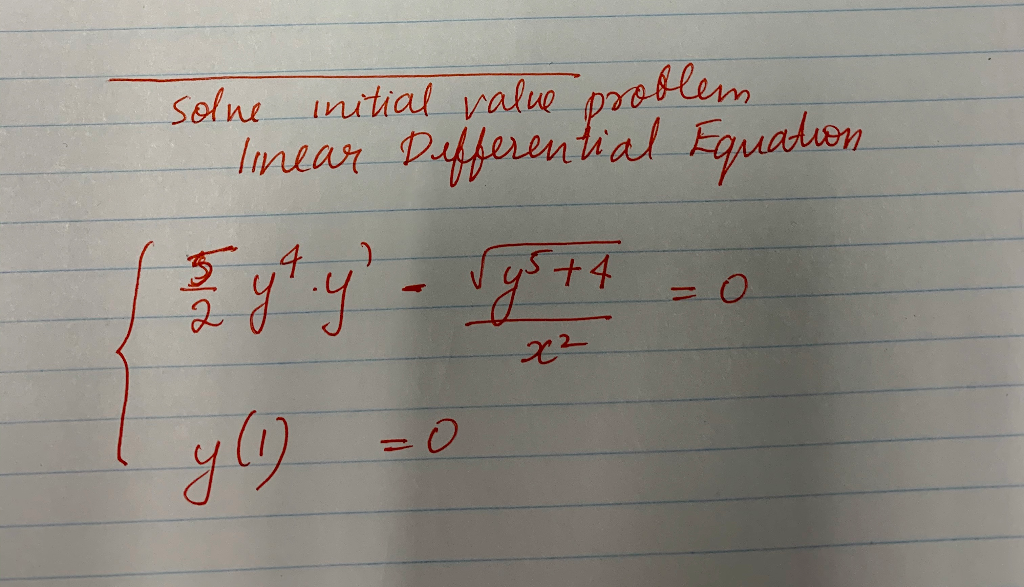 Solve initial value problem
linear Differential Equation
5/2 y⁴·y' - √(y⁵+4)/x² = 0
y(1) = 0